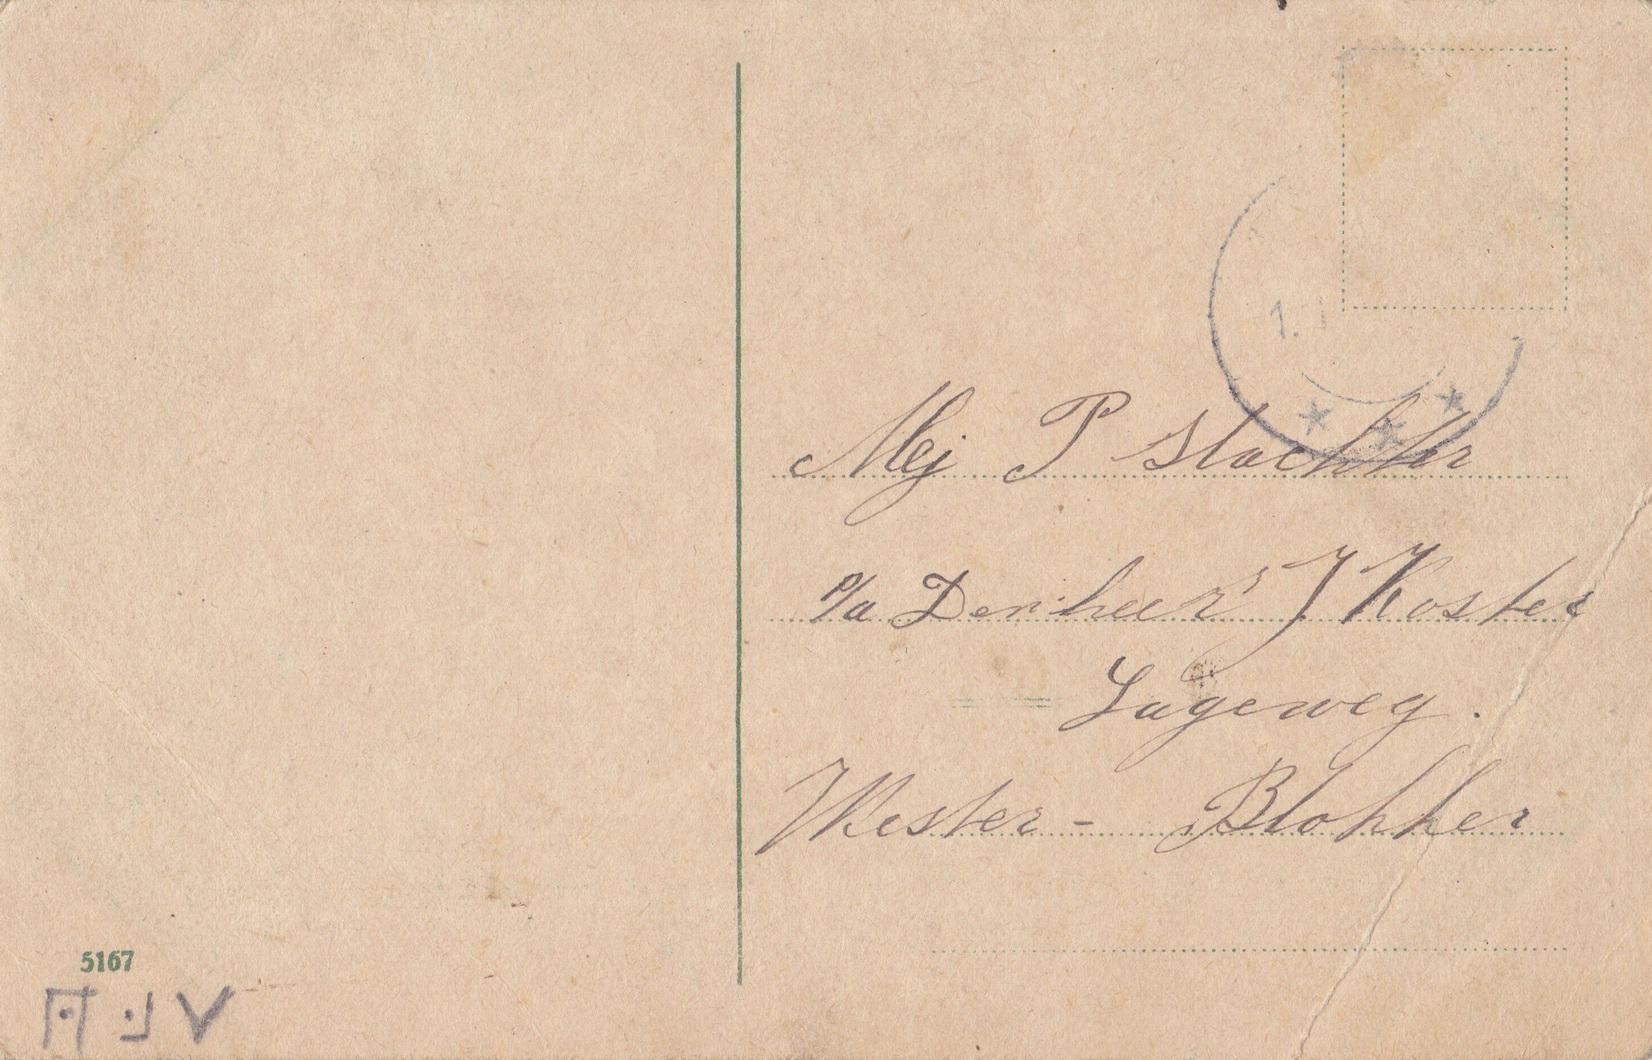 1.
Mej P Slachter
p/a Den heer J Koster
Lageweg.
Wester - Blokker
5167